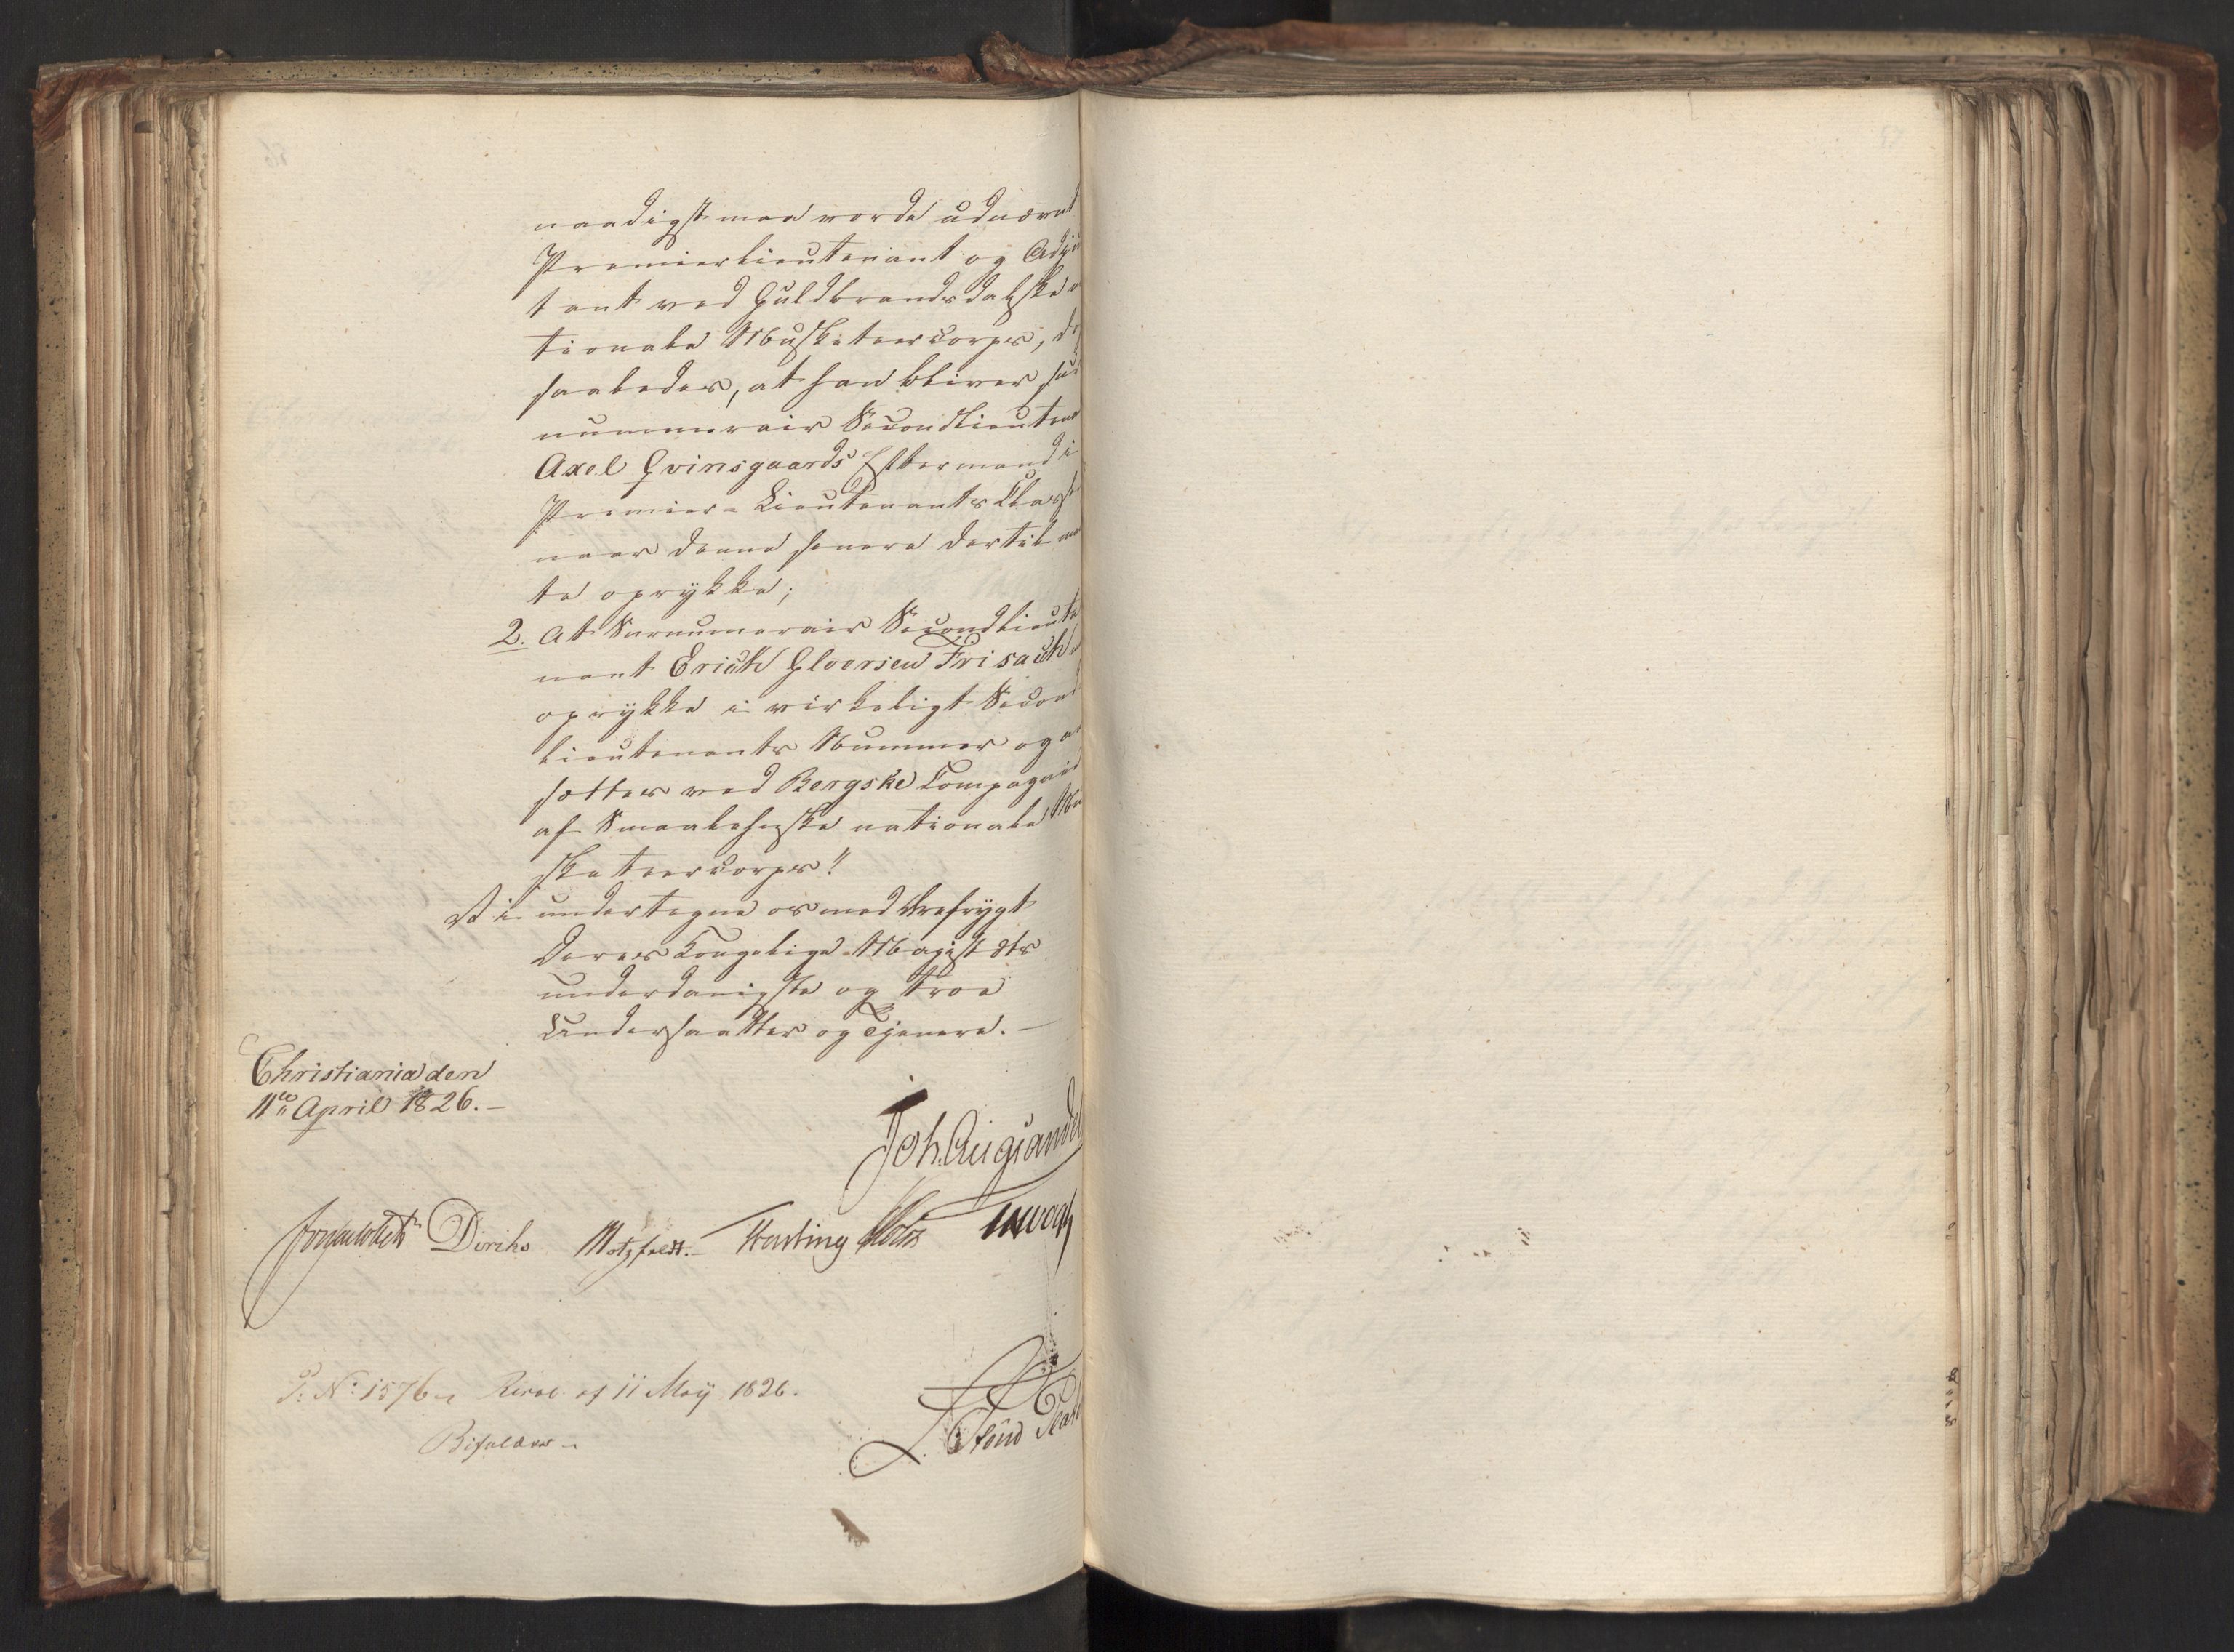 naadigst maa vorde udnævnt
Premierlieutenant og Adju
tant ved Guldbrandsdalske
tionale Musketeercorps, do
saaledes, at han bliver su
nummerair Secondlieutena
Axel Qvinsgaards Eftermand i
Premier-Lieutenants Classe
naar denne senere dertil maa
te oprykke;
2. At Surnumerair Secondlieute
nant Erich Gloersen Frisach
oprykke i virkeligt Second
lieutenants Nummer og an
sættes ved Bergske Compagnie
af Smaalehnske nationale Mu
sketeercorps!!
Vi undertegne os med Ærefrygt
Deres Kongelige Majestæts
underdanigste og troe
Undersaatter og Tjenere. —
Christiania den
11te April 1826. —
Joh. Aug. Sandel
Diriks Motzfeldt. Krog
P: No: 1576. Resol. af 11 May 1826.
Bifaldes